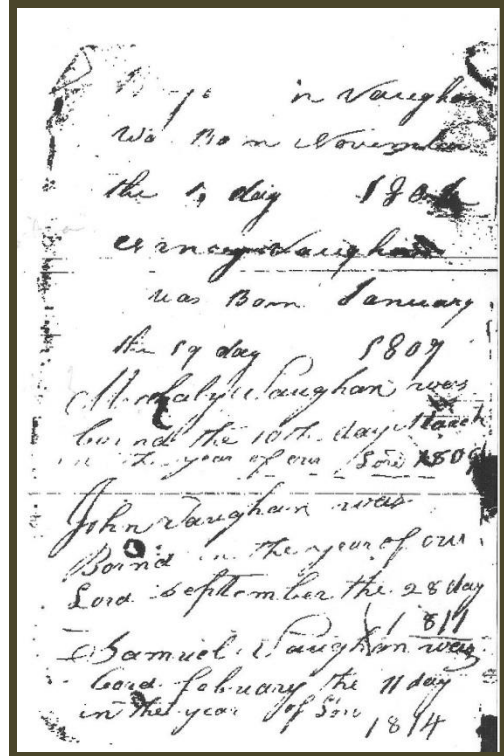 in Vaughan
Was Born November
the day 180
Vaughan
was Born January
the 19 day 1807
Mahaly Vaughan was
born d the 10th day March
in the year of our Lord 1809
John Vaughan was
Bornd in the year of our
Lord September the 28 day
1811
Samuel Vaughan was
bord february the 11 day
in the year of Lou
1814